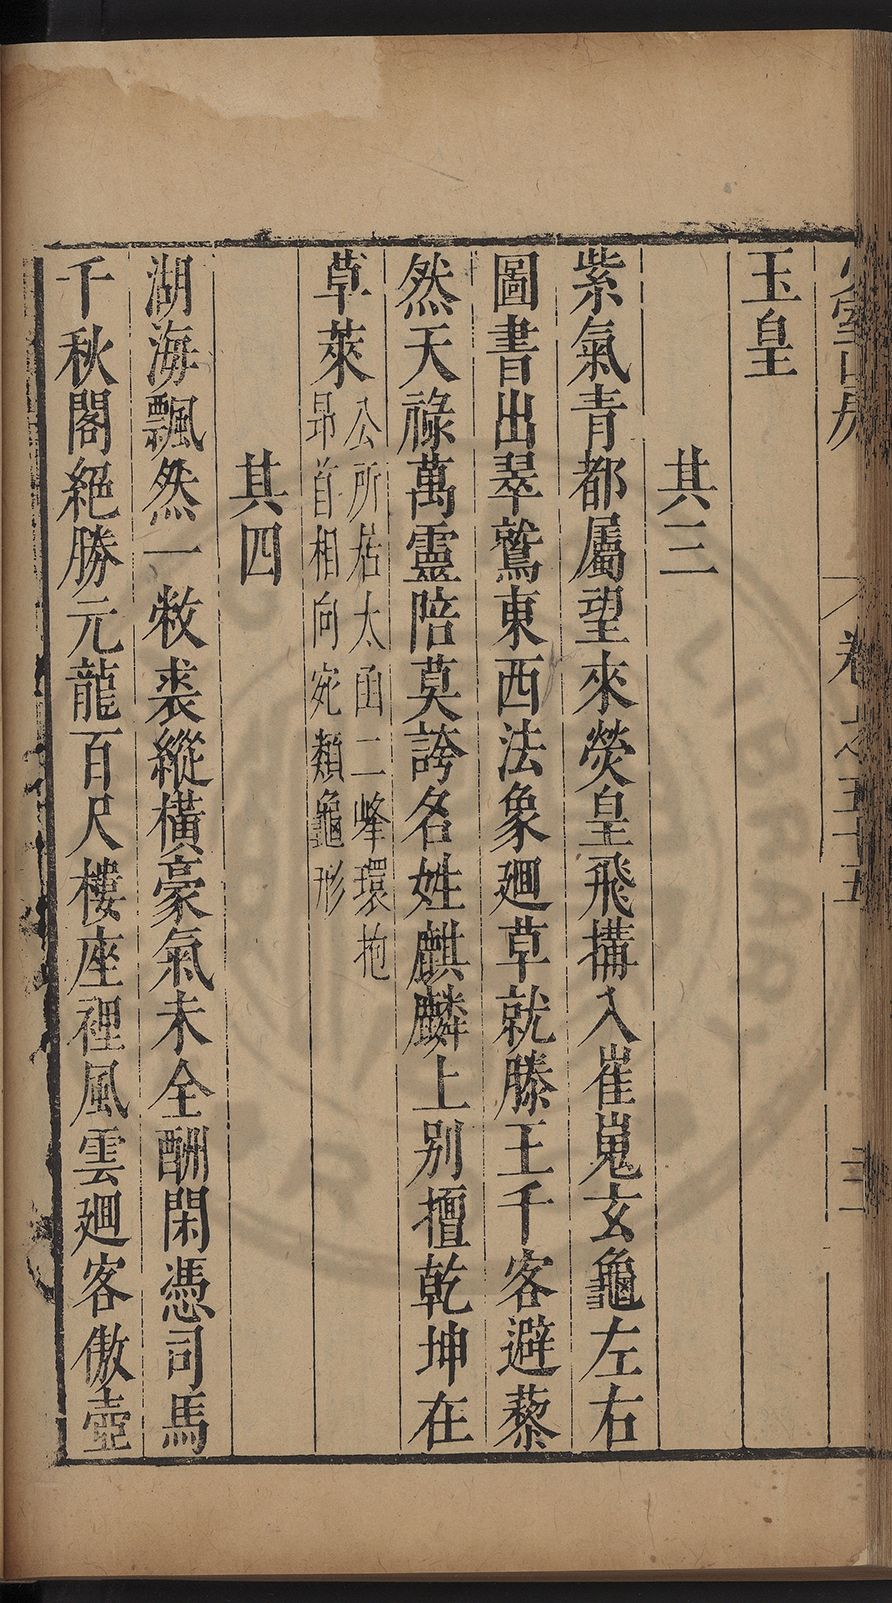 少室山房
卷之五十五
三
玉皇
其三
紫氣青都屬望來熒皇飛搆入崔嵬玄龜左右
圖書出翠鷲東西法象廻草就滕王千客避藜
然天祿萬靈陪莫誇名姓麒麟上别擅乾坤在
草萊
公所居太函二峰環抱
昻首相向宛類龜形
其四
湖海飄然一敝裘縱橫豪氣未全酬閑憑司馬
千秋閣絕勝元龍百尺樓座裡風雲廻客傲壺